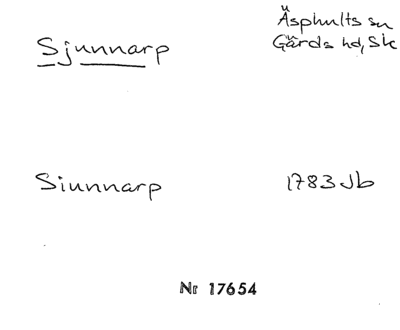 Sjunnarp
Äsphults sn
Gärds hd, Sk
Siunnarp
1783 Jb
Nr 17654